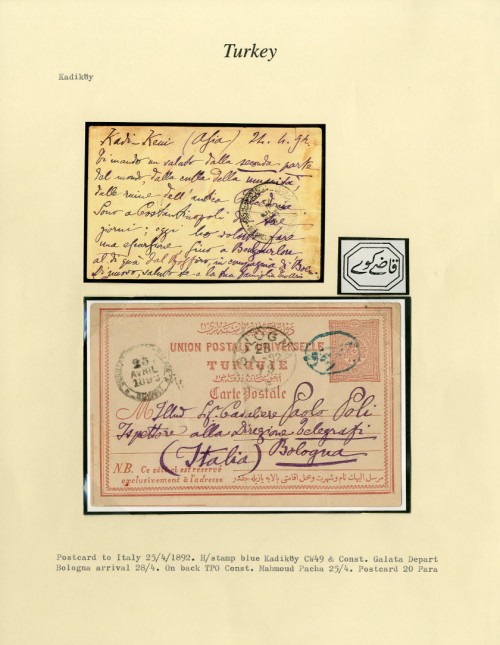 Turkey
Kadiköy
Kadi-Keui (Asia) 24.4.92
Vi mando un saluto dalla seconda parte
del mondo, dalla culla della umanità,
dalle ruine dell'antica
Sono a Costantinopoli da tre
giorni; oggi ho voluto fare
una escursione fino a
al di quà dal Bosforo, in compagnia di
saluto te e la tua famiglia
قاضی کوی
UNION POSTALE UNIVERSELLE
TURQUIE
Carte Postale
BOLOGNA
28
25
AVRIL
1892
M Illustr Sig. Cavaliere Paolo Poli
Ispettore alla Direzione Telegrafi
(Italia) Bologna
N.B. Ce côté est réservé
exclusivement à l'adresse
Postcard to Italy 25/4/1892. H/stamp blue Kadiköy CW49 & Const. Galata Depart
Bologna arrival 28/4. On back TPO Const. Mahmoud Pacha 25/4. Postcard 20 Para